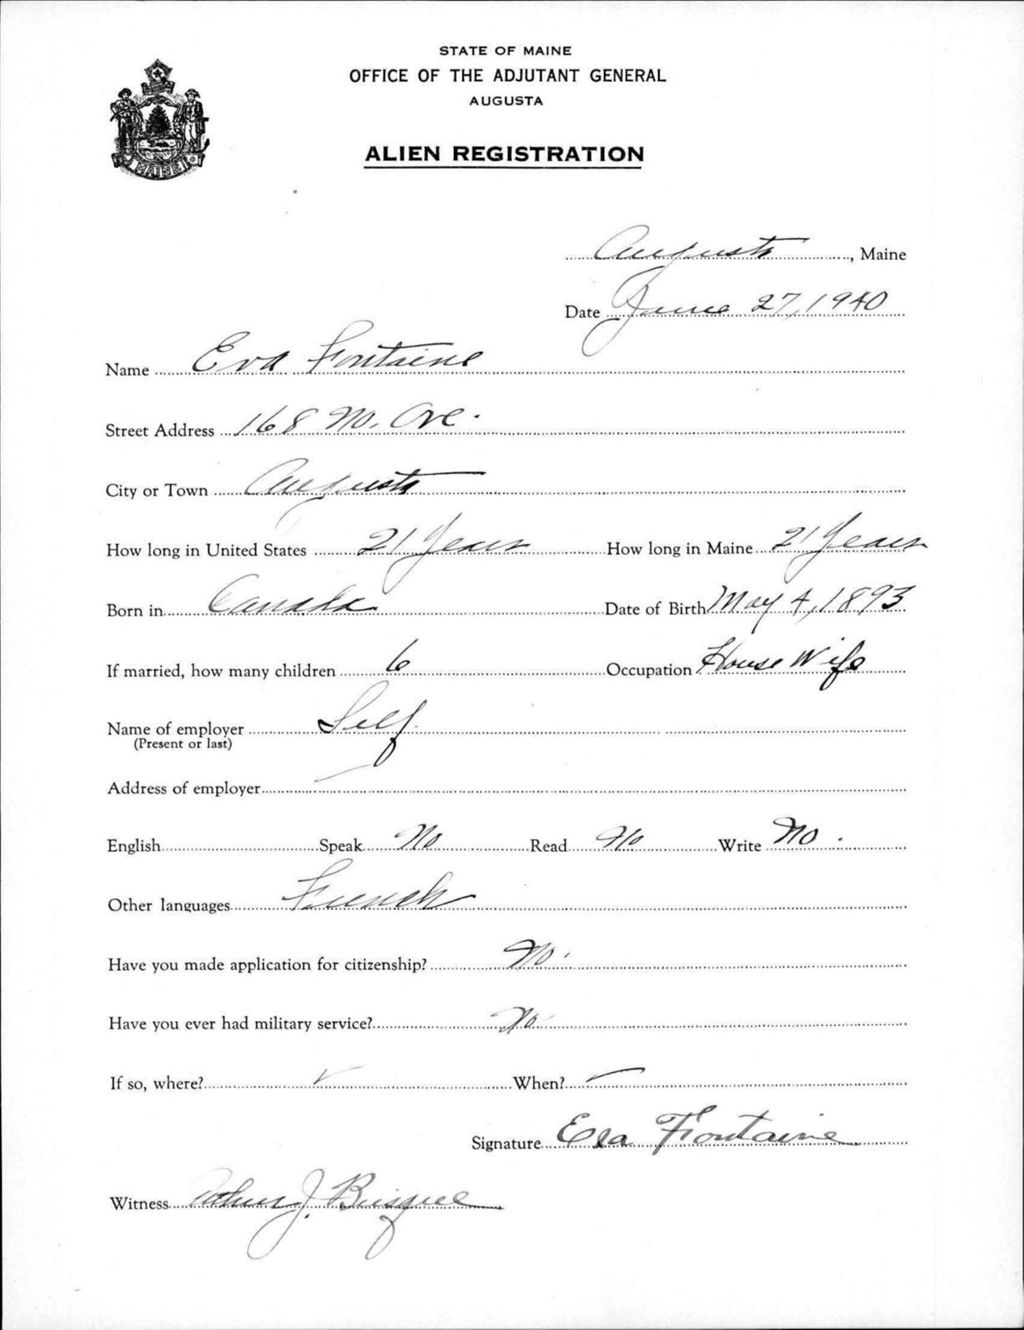 STATE OF MAINE
OFFICE OF THE ADJUTANT GENERAL
AUGUSTA
ALIEN REGISTRATION
MAINE
Augusta, Maine
Date June 27, 1940
Name Eva Fontaine
Street Address 168 No. Ave.
City or Town Augusta
How long in United States 21 Years How long in Maine 21 Years
Born in Canada Date of Birth May 4, 1893
If married, how many children 6 Occupation House Wife
Name of employer Self
(Present or last)
Address of employer —
English Speak No Read No Write No.
Other languages French
Have you made application for citizenship? No.
Have you ever had military service? No.
If so, where? When? —
Signature Eva Fontaine
Witness J.